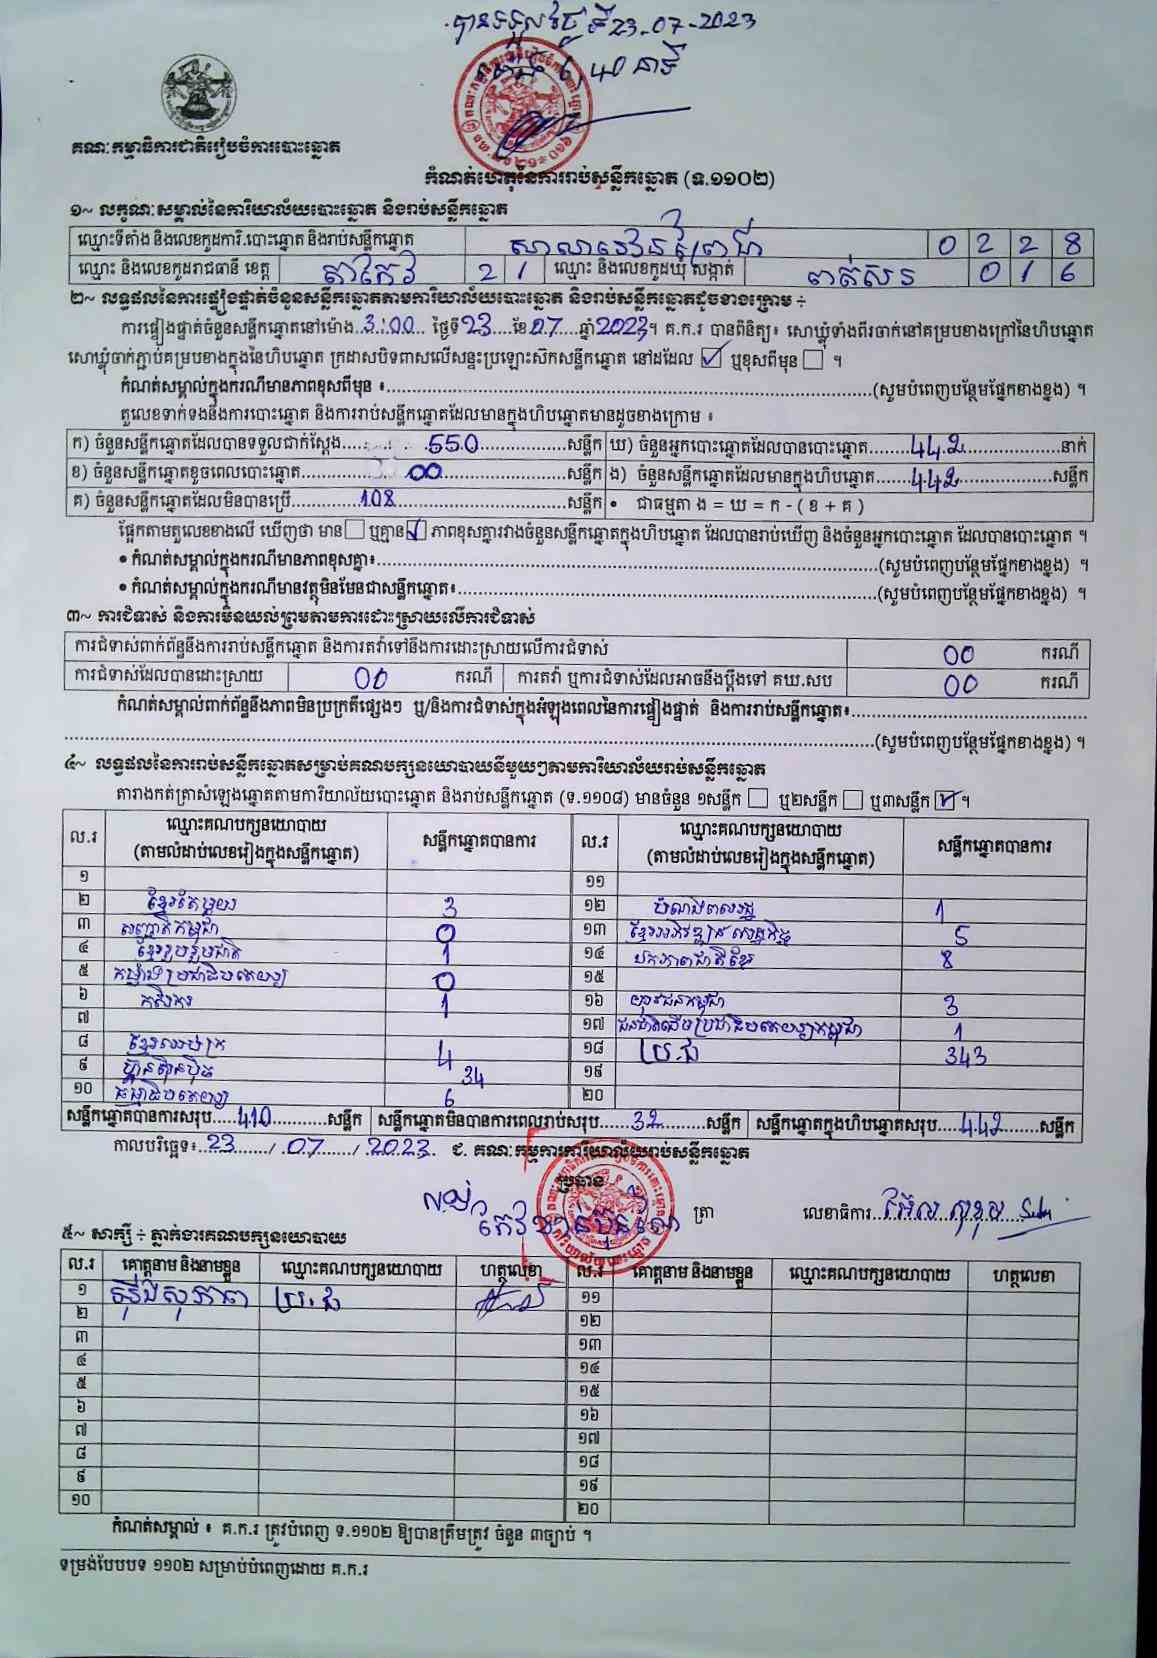 បានទទួល ថ្ងៃទី23-07-2023
40 នាទី
គណៈកម្មាធិការជាតិរៀបចំការបោះឆ្នោត
កំណត់ហេតុនៃការរាប់សន្លឹកឆ្នោត (ទ.១១០២)
១~ លក្ខណៈសម្គាល់នៃការិយាល័យបោះឆ្នោត និងរាប់សន្លឹកឆ្នោត
ឈ្មោះទីតាំង និងលេខកូដការិ.បោះឆ្នោត និងរាប់សន្លឹកឆ្នោត 0 2 2 8
ឈ្មោះ និងលេខកូដរាជធានី ខេត្ត តាកែវ 2 1 ឈ្មោះ និងលេខកូដឃុំ សង្កាត់ ពាត់សរ 0 1 6
២~ លទ្ធផលនៃការផ្ទៀងផ្ទាត់ចំនួនសន្លឹកឆ្នោតតាមការិយាល័យបោះឆ្នោត និងរាប់សន្លឹកឆ្នោតដូចខាងក្រោម ÷
ការផ្ទៀងផ្ទាត់ចំនួនសន្លឹកឆ្នោតនៅម៉ោង..3:00.... ថ្ងៃទី23....ខែ07....ឆ្នាំ2023។ គ.ក.រ បានពិនិត្យ៖ សោឃ្លុំទាំងពីរចាក់នៅគម្របខាងក្រៅនៃហិបឆ្នោត
សោឃ្លុំចាក់ភ្ជាប់គម្របខាងក្នុងនៃហិបឆ្នោត ក្រដាសបិទពាសលើសន្ទះប្រឡោះស៊កសន្លឹកឆ្នោត នៅដដែល ☑ ឬខុសពីមុន ☐ ។
កំណត់សម្គាល់ក្នុងករណីមានភាពខុសពីមុន ៖..........(សូមបំពេញបន្ថែមផ្នែកខាងខ្នង) ។
តួលេខទាក់ទងនឹងការបោះឆ្នោត និងការរាប់សន្លឹកឆ្នោតដែលមានក្នុងហិបឆ្នោតមានដូចខាងក្រោម ៖
ក) ចំនួនសន្លឹកឆ្នោតដែលបានទទួលជាក់ស្តែង.....550.....សន្លឹក ឃ) ចំនួនអ្នកបោះឆ្នោតដែលបានបោះឆ្នោត.....442.....នាក់
ខ) ចំនួនសន្លឹកឆ្នោតខូចពេលបោះឆ្នោត.....00.....សន្លឹក ង) ចំនួនសន្លឹកឆ្នោតដែលមានក្នុងហិបឆ្នោត.....442.....សន្លឹក
គ) ចំនួនសន្លឹកឆ្នោតដែលមិនបានប្រើ.....108.....សន្លឹក • ជាធម្មតា ង = ឃ = ក - ( ខ + គ )
ផ្អែកតាមតួលេខខាងលើ ឃើញថា មាន ☐ ឬគ្មាន ☑ ភាពខុសគ្នារវាងចំនួនសន្លឹកឆ្នោតក្នុងហិបឆ្នោត ដែលបានរាប់ឃើញ និងចំនួនអ្នកបោះឆ្នោត ដែលបានបោះឆ្នោត ។
• កំណត់សម្គាល់ក្នុងករណីមានភាពខុសគ្នា៖..........(សូមបំពេញបន្ថែមផ្នែកខាងខ្នង) ។
• កំណត់សម្គាល់ក្នុងករណីមានវត្ថុមិនមែនជាសន្លឹកឆ្នោត៖..........(សូមបំពេញបន្ថែមផ្នែកខាងខ្នង) ។
៣~ ការជំទាស់ និងការមិនយល់ព្រមតាមការដោះស្រាយលើការជំទាស់
ការជំទាស់ពាក់ព័ន្ធនឹងការរាប់សន្លឹកឆ្នោត និងការតវ៉ាទៅនឹងការដោះស្រាយលើការជំទាស់ 00 ករណី
ការជំទាស់ដែលបានដោះស្រាយ 00 ករណី ការតវ៉ា ឬការជំទាស់ដែលអាចនឹងប្តឹងទៅ គឃ.សប 00 ករណី
កំណត់សម្គាល់ពាក់ព័ន្ធនឹងភាពមិនប្រក្រតីផ្សេងៗ ឬ/និងការជំទាស់ក្នុងអំឡុងពេលនៃការផ្ទៀងផ្ទាត់ និងការរាប់សន្លឹកឆ្នោត៖..........
..........(សូមបំពេញបន្ថែមផ្នែកខាងខ្នង) ។
៤~ លទ្ធផលនៃការរាប់សន្លឹកឆ្នោតសម្រាប់គណបក្សនយោបាយនីមួយៗតាមការិយាល័យរាប់សន្លឹកឆ្នោត
តារាងកត់ត្រាសំឡេងឆ្នោតតាមការិយាល័យបោះឆ្នោត និងរាប់សន្លឹកឆ្នោត (ទ.១១០៨) មានចំនួន ១សន្លឹក ☐ ឬ២សន្លឹក ☐ ឬ៣សន្លឹក ☑ ។
ល.រ ឈ្មោះគណបក្សនយោបាយ (តាមលំដាប់លេខរៀងក្នុងសន្លឹកឆ្នោត) សន្លឹកឆ្នោតបានការ ល.រ ឈ្មោះគណបក្សនយោបាយ (តាមលំដាប់លេខរៀងក្នុងសន្លឹកឆ្នោត) សន្លឹកឆ្នោតបានការ
១ ១១
២ ខ្មែរតែមួយ 3 ១២ 1
៣ សញ្ជាតិកម្ពុជា 0 ១៣ ខ្មែរអភិវឌ្ឍន៍សេដ្ឋកិច្ច 5
៤ ខ្មែររួបរួមជាតិ 1 ១៤ ឯកភាពជាតិខ្មែរ 8
៥ 0 ១៥
៦ កសិករ 1 ១៦ យុវជនកម្ពុជា 3
៧ ១៧ ជនជាតិដើមប្រជាធិបតេយ្យកម្ពុជា 1
៨ 4 ១៨ ប្រ.ជ 343
៩ ហ្វ៊ុនស៊ិនប៉ិច 34 ១៩
១០ ធម្មាធិបតេយ្យ 6 ២០
សន្លឹកឆ្នោតបានការសរុប.....410.....សន្លឹក សន្លឹកឆ្នោតមិនបានការពេលរាប់សរុប.....32.....សន្លឹក សន្លឹកឆ្នោតក្នុងហិបឆ្នោតសរុប.....442.....សន្លឹក
កាលបរិច្ឆេទ៖..23..../..07..../..2023.. ជ. គណៈកម្មការការិយាល័យរាប់សន្លឹកឆ្នោត
ប្រធាន
ត្រា លេខាធិការ
៥~ សាក្សី ÷ ភ្នាក់ងារគណបក្សនយោបាយ
ល.រ គោត្តនាម និងនាមខ្លួន ឈ្មោះគណបក្សនយោបាយ ហត្ថលេខា ល.រ គោត្តនាម និងនាមខ្លួន ឈ្មោះគណបក្សនយោបាយ ហត្ថលេខា
១ ប្រ.ជ ១១
២ ១២
៣ ១៣
៤ ១៤
៥ ១៥
៦ ១៦
៧ ១៧
៨ ១៨
៩ ១៩
១០ ២០
កំណត់សម្គាល់ ៖ គ.ក.រ ត្រូវបំពេញ ទ.១១០២ ឱ្យបានត្រឹមត្រូវ ចំនួន ៣ច្បាប់ ។
ទម្រង់បែបបទ ១១០២ សម្រាប់បំពេញដោយ គ.ក.រ